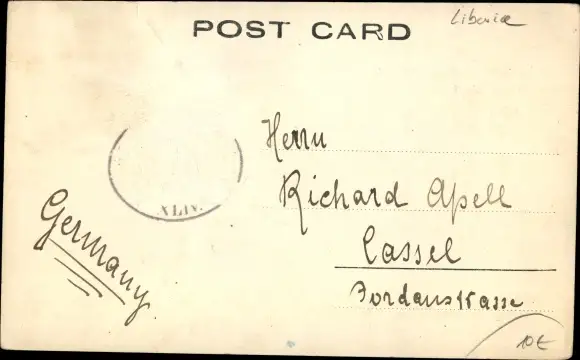 Liberia
POST CARD
Herrn
Richard Apell
Cassel
Jordanstrasse
Germany
XLIV.
10€